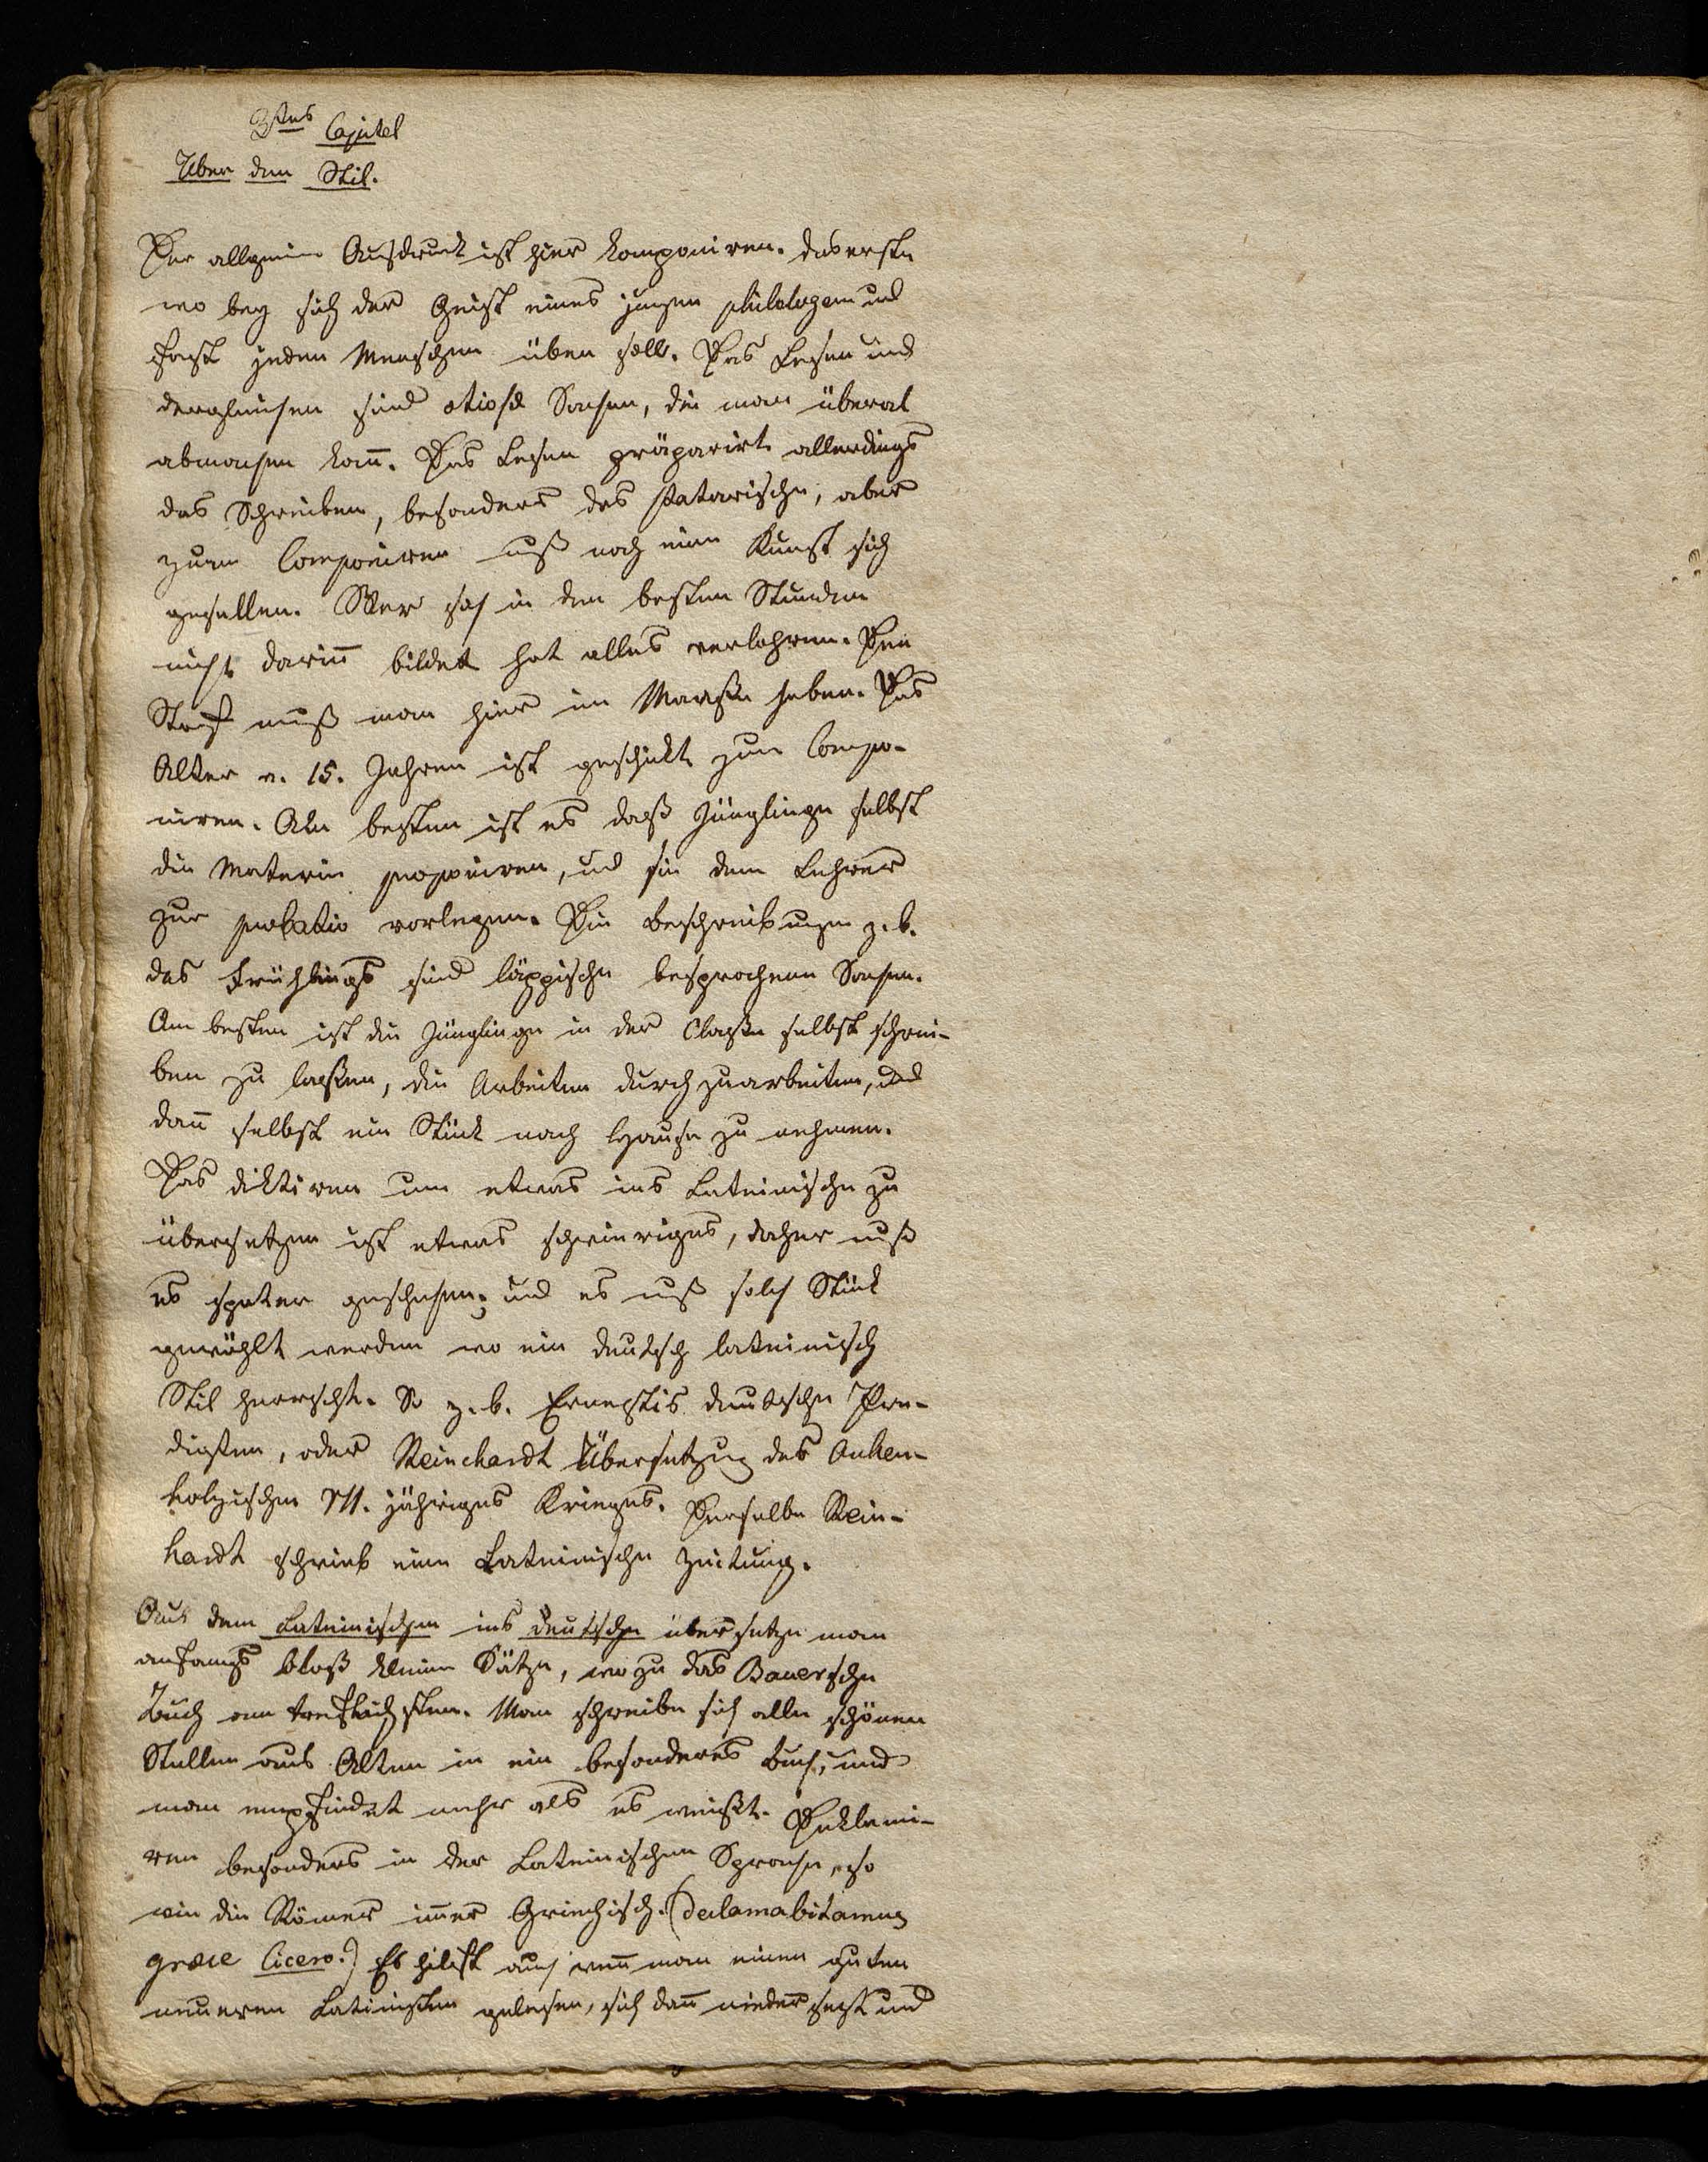 3tes Capitel
Über den Stil.
Der allgemeine Ausdruck ist hier komponiren. das erste
wo bey sich der Geist eines jungen philologen und
fast jeden Menschen üben soll. Das Lesen und
dergleichen sind otiose Sachen, die man überal
abmachen kan̄. Das Lesen präparirt allerdings
das Schreiben, besonders das statarische, aber
zum Componiren muß noch eine Kunst sich
gesellen. Wer sich in den besten Stunden
nicht darin̄ bildet hat alles verlohren. Den
Stoff muß man hier in Maaße haben. Das
Alter v. 15. Jahren ist geschickt zum Compo-
niren. Am besten ist es daß Jünglinge selbst
die Materie proponiren, und sie dem Lehrer
zur probatio vorlegen. Die Beschreibungen z. b.
des Frühlings sind läppische besprochene Sachen.
Am besten ist die Jünglinge in der Classe selbst schrei-
ben zu lassen, die Arbeiten durchzuarbeiten, und
dan̄ selbst ein Stück nach Hause zu nehmen.
Das diktiren um etwas ins Lateinische zu
übersetzen ist etwas schwieriges, daher muß
es später geschehen, und es muß solch Stück
gewählt werden wo ein deutsch lateinisch
Stil herrscht. So z. b. Ernestis deutsche Pre-
digten, oder Reinchardt Übersetzung des Anken-
holzischen VII. jähriges Krieges. Derselbe Rein-
hardt schrieb eine Lateinische Zeitung.
Aus dem Lateinischen ins deutsche übersetze man
anfangs bloß kleine Sätze, wozu das Bauersche
Buch am treflichsten. Man schreibe sich alle schönen
Stellen aus Alten in ein besonderes Buch, und
man empfindet mehr als es weißt. Deklami-
ren besonders in der Lateinischen Sprache, so
wie die Römer im̄er Griechisch. (declamabitamus
græce Cicero.) Es hilft auch wen̄ man einen guten
neueren Latinisten gelesen, sich dan̄ niedersetzt und